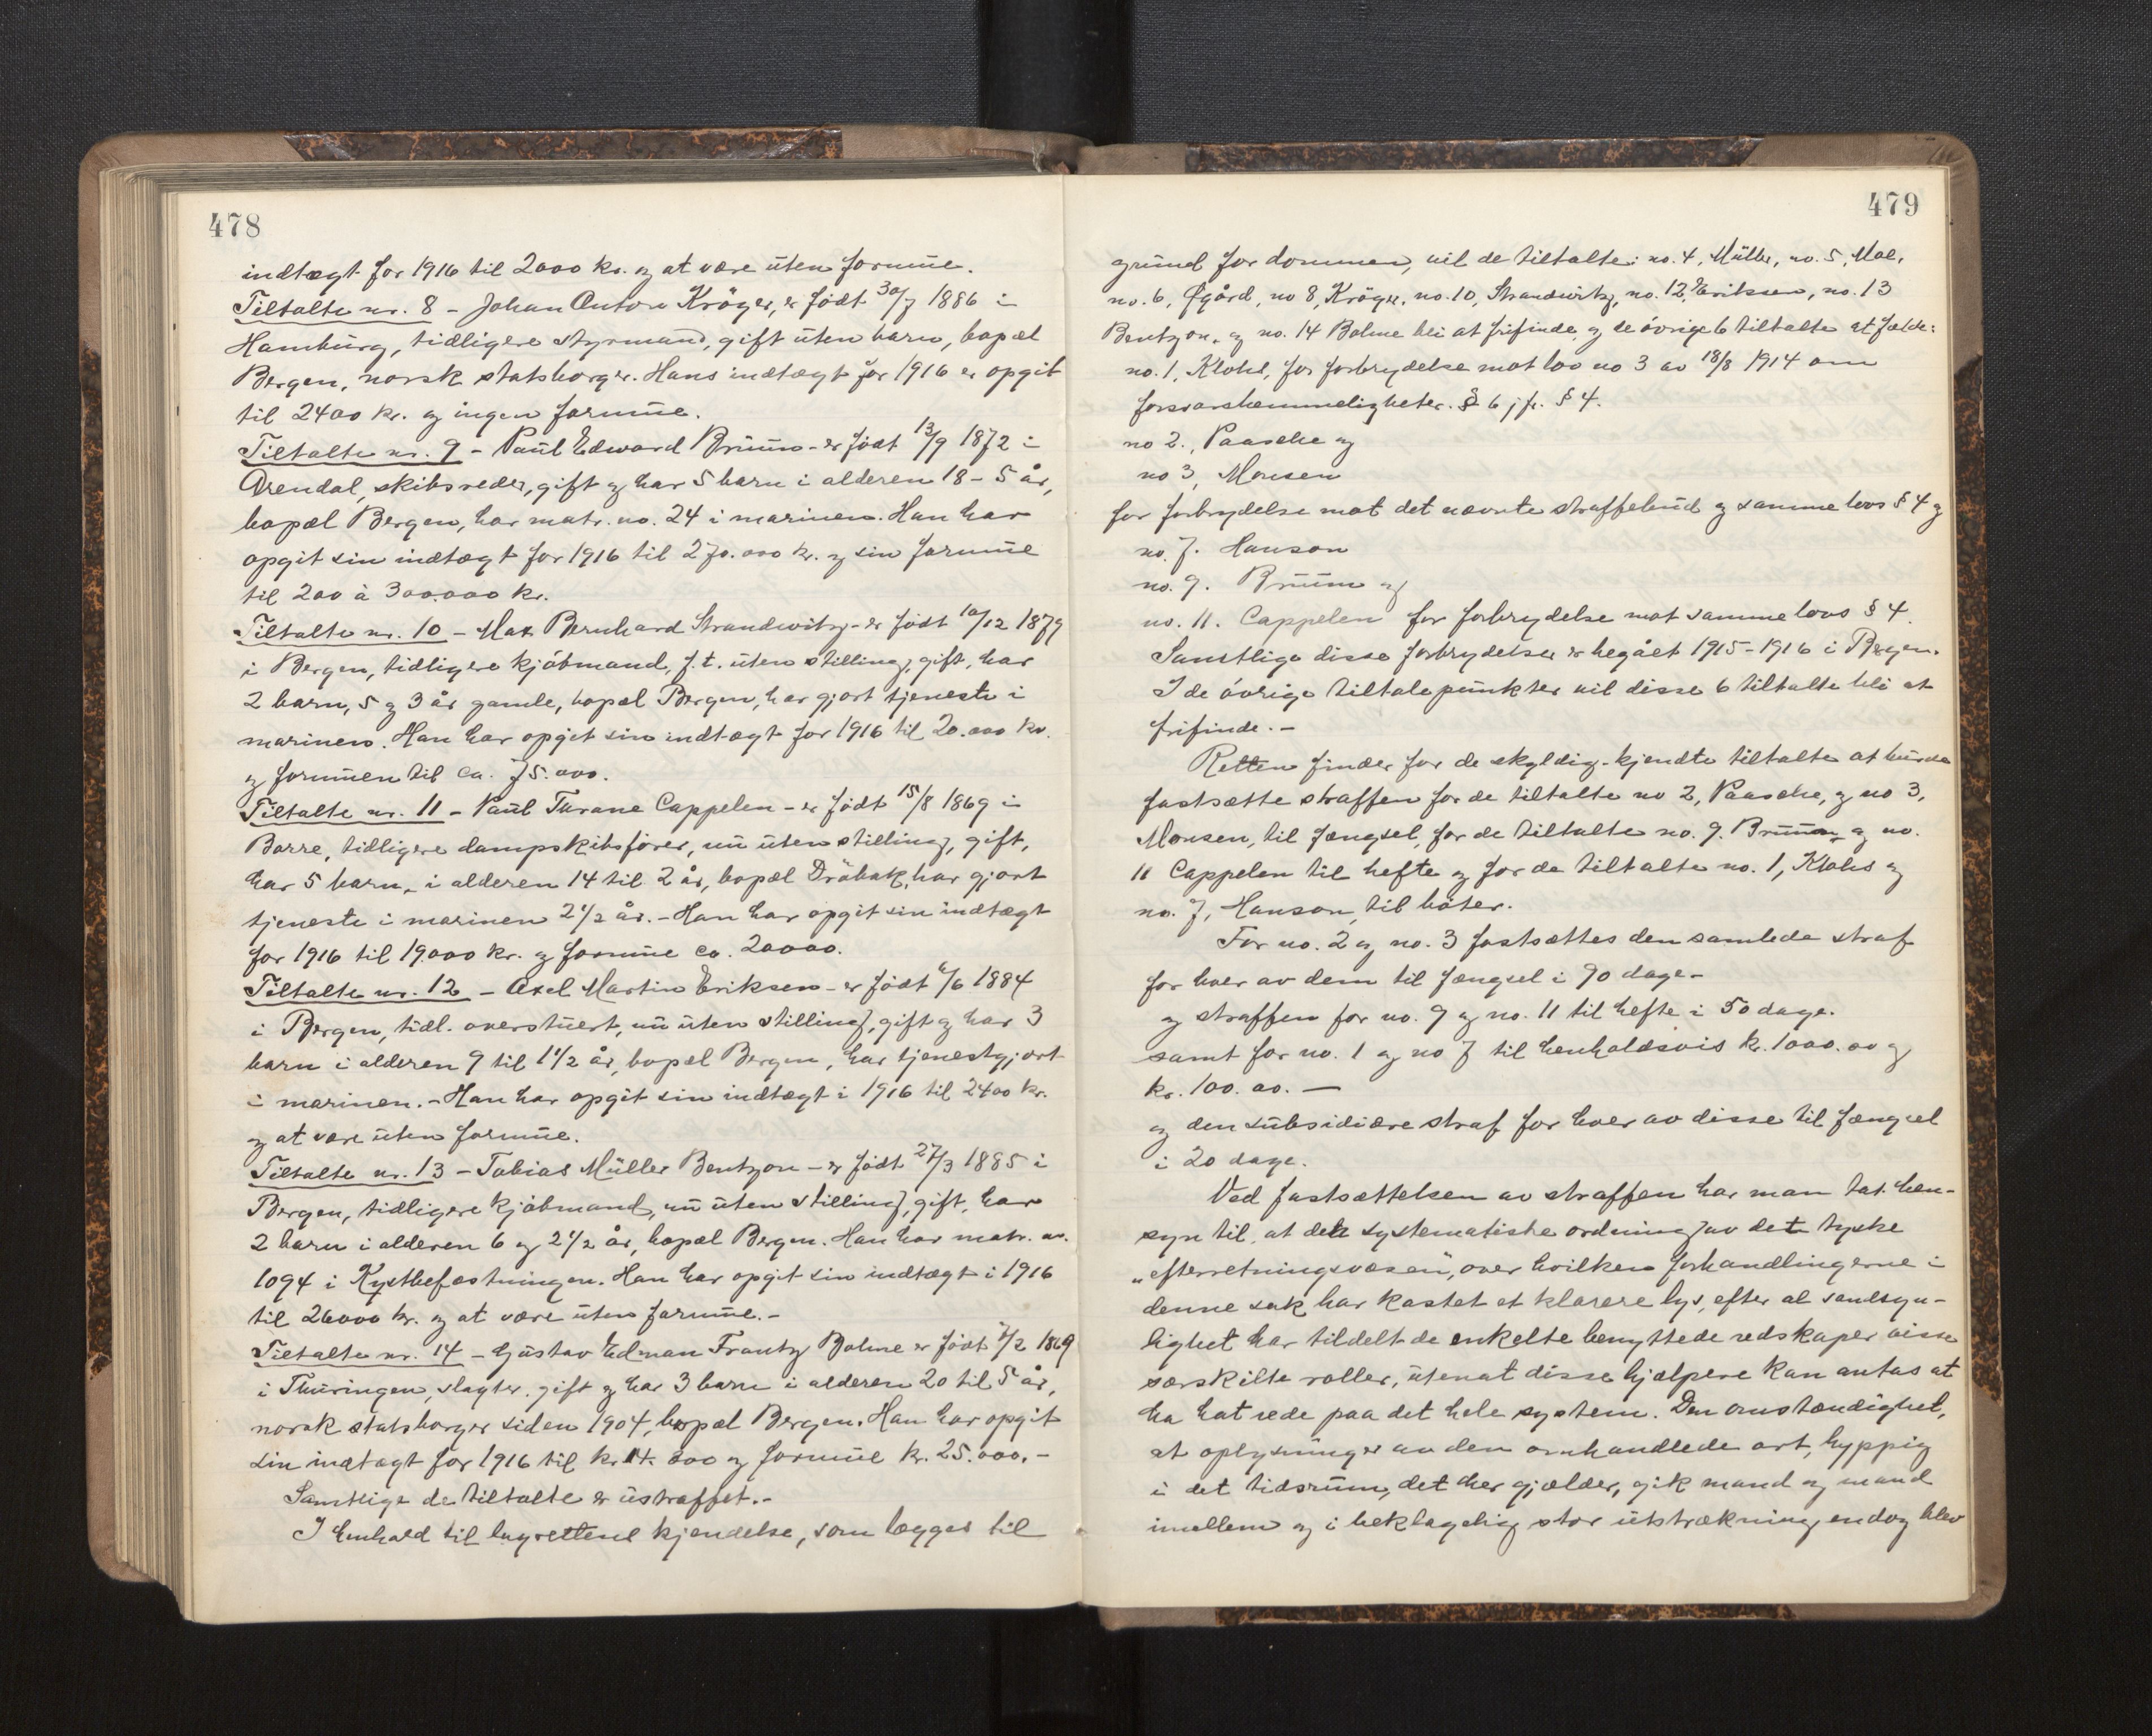 478
indtægt for 1916 til 2000 kr. og at være uten formue.
Tiltalte nr. 8 - Johan Anton Kröger, er født 30/7 1886 i
Hamburg, tidligere styrmand, gift uten barn, bopæl
Bergen, norsk statsborger. Hans indtægt for 1916 er opgit
til 2400 kr. og ingen formue.
Tiltalte nr. 9 - Paul Edward Bruun - er født 13/9 1872 i
Arendal, skibsreder, gift og har 5 barn i alderen 18 - 5 år,
bopæl Bergen, har matr. no. 24 i marinen. Han har
opgit sin indtægt for 1916 til 270.000 kr. og sin formue
til 200 à 300.000 kr.
Tiltalte nr. 10 - Max Bernhard Strandwitz - er født 10/12 1879
i Bergen, tidligere kjøbmand, f. t. uten stilling, gift, har
2 barn, 5 og 3 år gamle, bopæl Bergen, har gjort tjeneste i
marinen. Han har opgit sin indtægt for 1916 til 20.000 kr.
og formuen til ca. 75.000.
Tiltalte nr. 11 - Paul Thrane Cappelen - er født 15/8 1869 i
Borre, tidligere dampskibsfører, nu uten stilling, gift,
har 5 barn, i alderen 14 til 2 år, bopæl Drøbak, har gjort
tjeneste i marinen 2 1/2 år. - Han har opgit sin indtægt
for 1916 til 19.000 kr. og formue ca. 20000.
Tiltalte nr. 12 - Axel Martin Eriksen - er født 6/6 1884
i Bergen, tidl. overstuert, nu uten stilling, gift og har 3
barn i alderen 9 til 1 1/2 år, bopæl Bergen, har tjenestgjort
i marinen. - Han har opgit sin indtægt i 1916 til 2400 kr.
og at være uten formue.
Tiltalte nr. 13 - Tobias Müller Bentzon - er født 27/3 1885 i
Bergen, tidligere kjøbmand, nu uten stilling, gift, har
2 barn i alderen 6 og 2 1/2 år, bopæl Bergen. Han har matr. no.
1094 i Kystbefæstningen. Han har opgit sin indtægt i 1916
til 26000 kr. og at være uten formue. -
Tiltalte nr. 14 - Gustav Edman Frantz Bohne er født /2 1869
i Thüringen, slagter, gift og har 3 barn i alderen 20 til 5 år,
norsk statsborger siden 1904, bopæl Bergen. Han har opgit
sin indtægt for 1916 til kr. 14.000 og formue kr. 25.000. -
Samtlige de tiltalte er ustraffet. -
I henhold til lagrettens kjendelse, som lægges til
479
grund for dommen, vil de tiltalte: no. 4, Müller, no. 5, Moe,
no. 6, Øgård, no 8, Kröger, no. 10, Strandwitz, no. 12, Eriksen, no. 13
Bentzon, og no. 14 Bohne bli at frifinde, og de øvrige 6 tiltalte at fælde:
no. 1, Klohs, for forbrydelse mot lov no 3 av 18/8 1914 om
forsvarshemmeligheter. § 6 jfr. § 4.
no 2., Paasche og
no 3, Monsen
for forbrydelse mot det nævnte straffebud og samme lovs § 4 og
no. 7. Hanson
no. 9. Bruun og
no. 11. Cappelen for forbrydelse mot samme lovs § 4.
Samtlige disse forbrydelser er begået 1915 - 1916 i Bergen.
I de øvrige tiltalepunkter vil disse 6 tiltalte bli at
frifinde. -
Retten finder for de skyldig-kjendte tiltalte at burde
fastsætte straffen for de tiltalte no 2, Paasche, og no 3,
Monsen, til fængsel, for de tiltalte no. 9. Bruun og no.
11 Cappelen til hefte og for de tiltalte no. 1, Klohs og
no. 7, Hanson, til bøter.
For no. 2 og no. 3 fastsættes den samlede straf
for hver av dem til fængsel i 90 dage -
og straffen for no. 9 og no. 11 til hefte i 50 dage.
samt for no. 1 og no 7 til henholdsvis kr. 1000.00 og
kr. 100.00. -
og den subsidiære straf for hver av disse til fængsel
i 20 dage.
Ved fastsættelsen av straffen har man tat hen-
syn til, at den systematiske ordning av det tyske
„efterretningsvæsen", over hvilken forhandlingerne i
denne sak har kastet et klarere lys, efter al sandsyn-
lighet har tildelt de enkelte benyttede redskaper visse
særskilte roller, uten at disse hjælpere kan antas at
ha hat rede paa det hele system. Den omstændighet,
at oplysninger av den omhandlede art, hyppig
i det tidsrum, det her gjælder, gik mand og mand
imellem og i beklagelig stor utstrækning endog blev